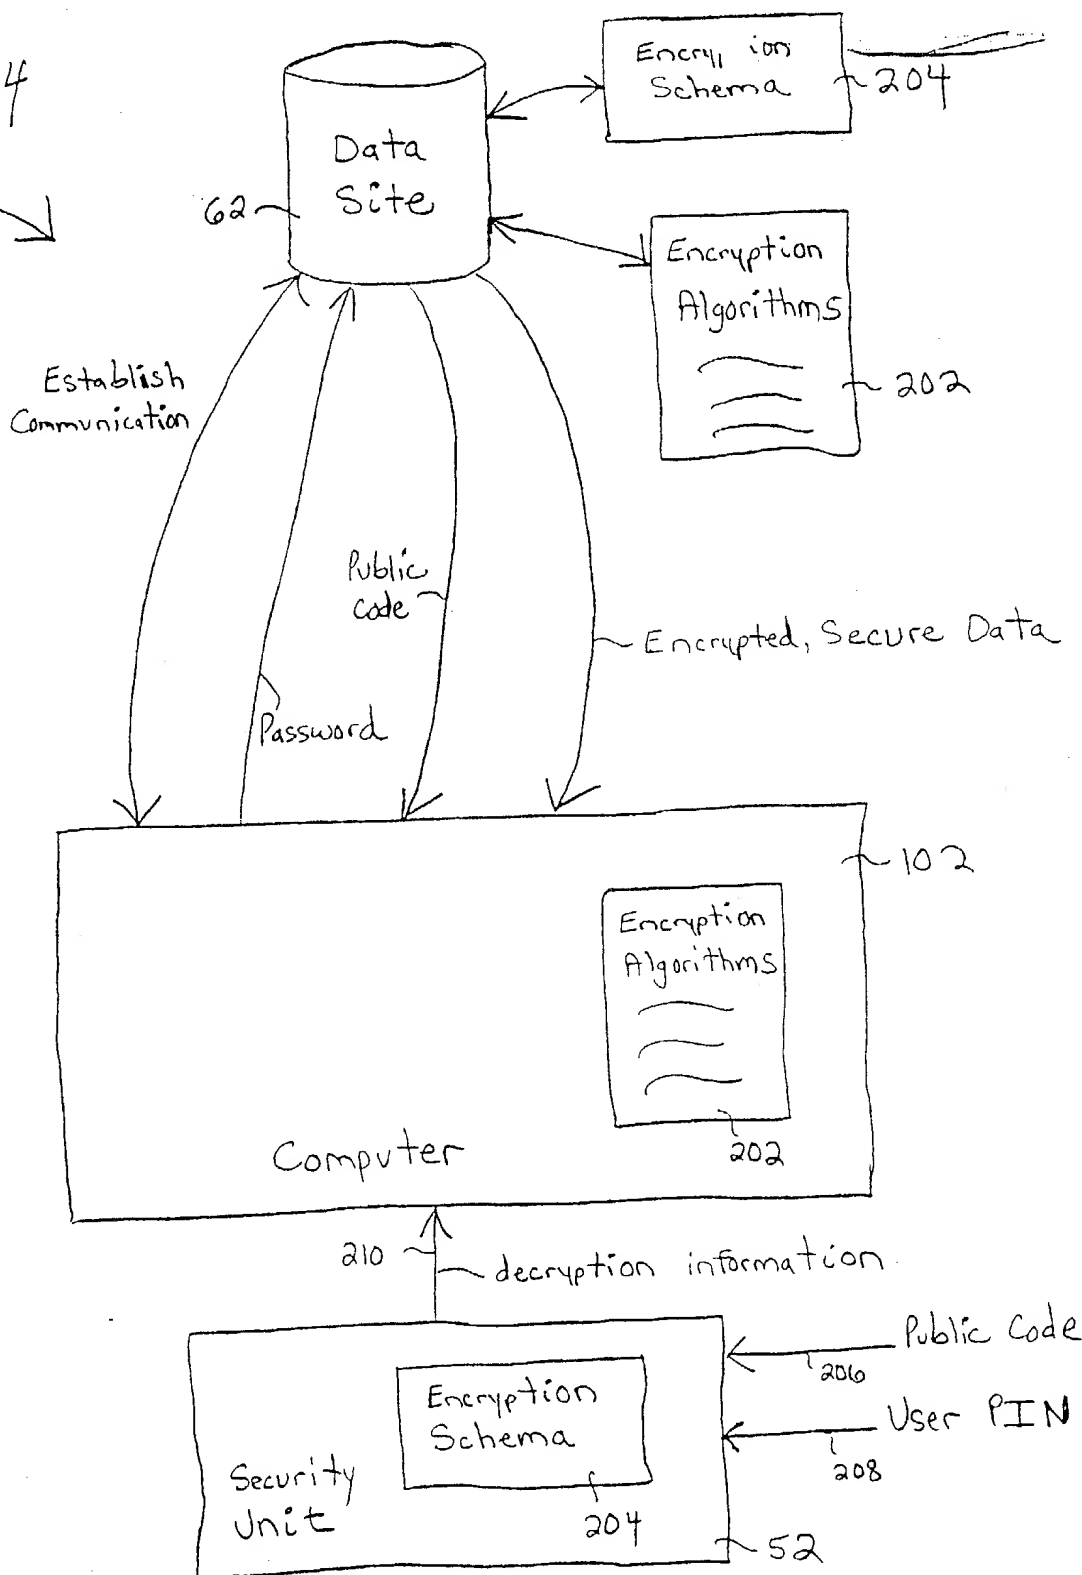 4
Data
Site
62
Schema
204
Encryption
Algorithms
202
Establish
Communication
Public
code
Password
Encrypted, Secure Data
102
Encryption
Algorithms
202
Computer
210
decryption information
Public Code
206
User PIN
208
Encryption
Schema
204
Security
Unit
52